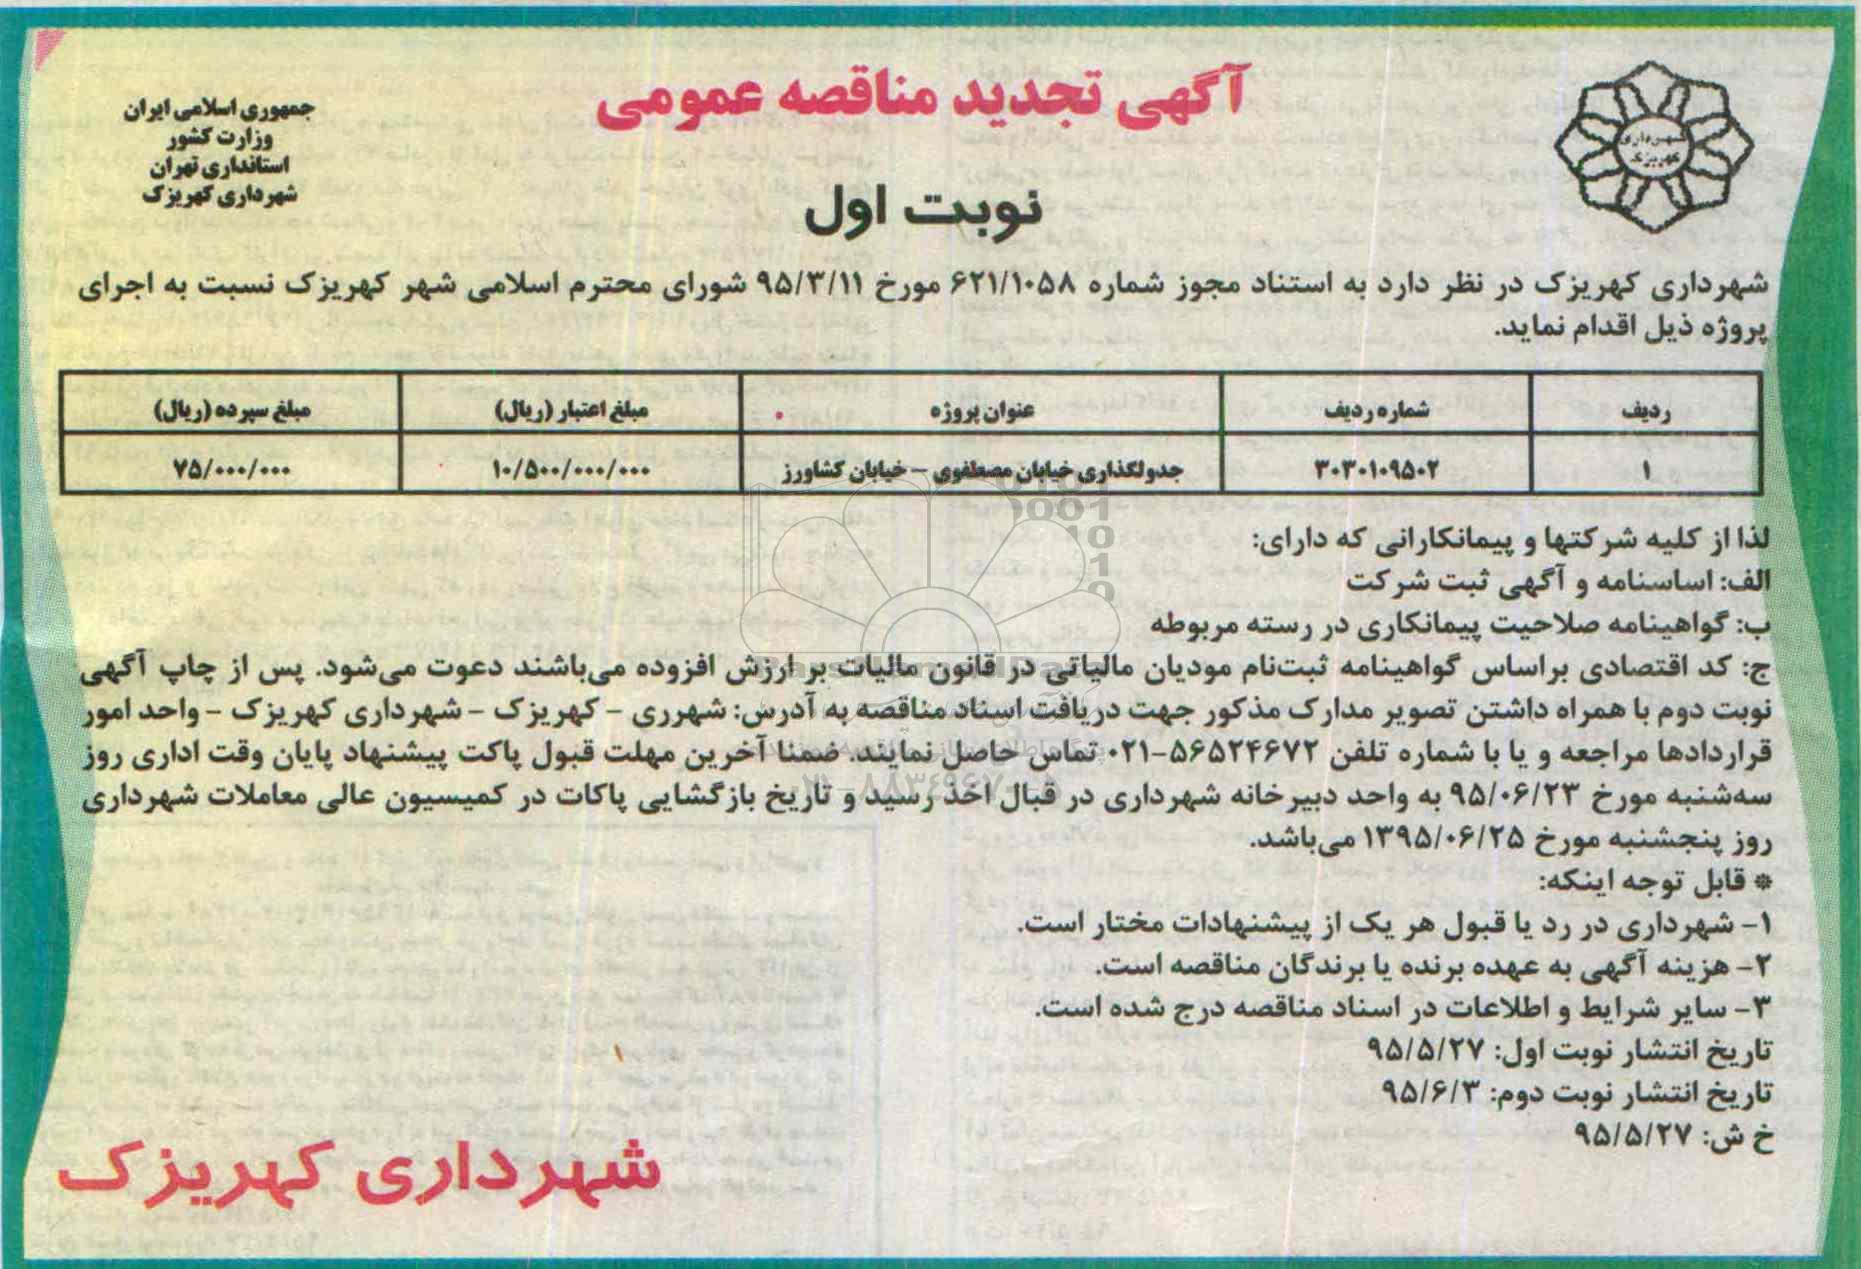 آگهی تجدید مناقصه عمومی
جمهوری اسلامی ایران
وزارت کشور
استانداری تهران
شهرداری کهریزک
شهرداری
کهریزک
نوبت اول
شهرداری کهریزک در نظر دارد به استناد مجوز شماره ۶۲۱/۱۰۵۸ مورخ ۹۵/۳/۱۱ شورای محترم اسلامی شهر کهریزک نسبت به اجرای
پروژه ذیل اقدام نماید.
ردیف شماره ردیف عنوان پروژه مبلغ اعتبار (ریال) مبلغ سپرده (ریال)
۱ ۳۰۳۰۱۰۹۵۰۲ جدولگذاری خیابان مصطفوی – خیابان کشاورز ۱۰/۵۰۰/۰۰۰/۰۰۰ ۷۵/۰۰۰/۰۰۰
لذا از کلیه شرکتها و پیمانکارانی که دارای:
الف: اساسنامه و آگهی ثبت شرکت
ب: گواهینامه صلاحیت پیمانکاری در رسته مربوطه
ج: کد اقتصادی براساس گواهینامه ثبت‌نام مودیان مالیاتی در قانون مالیات بر ارزش افزوده می‌باشند دعوت می‌شود. پس از چاپ آگهی
نوبت دوم با همراه داشتن تصویر مدارک مذکور جهت دریافت اسناد مناقصه به آدرس: شهرری – کهریزک – شهرداری کهریزک – واحد امور
قراردادها مراجعه و یا با شماره تلفن ۵۶۵۲۴۶۷۲-۰۲۱ تماس حاصل نمایند. ضمنا آخرین مهلت قبول پاکت پیشنهاد پایان وقت اداری روز
سه‌شنبه مورخ ۹۵/۰۶/۲۳ به واحد دبیرخانه شهرداری در قبال اخذ رسید و تاریخ بازگشایی پاکات در کمیسیون عالی معاملات شهرداری
روز پنجشنبه مورخ ۱۳۹۵/۰۶/۲۵ می‌باشد.
* قابل توجه اینکه:
۱- شهرداری در رد یا قبول هر یک از پیشنهادات مختار است.
۲- هزینه آگهی به عهده برنده یا برندگان مناقصه است.
۳- سایر شرایط و اطلاعات در اسناد مناقصه درج شده است.
تاریخ انتشار نوبت اول: ۹۵/۵/۲۷
تاریخ انتشار نوبت دوم: ۹۵/۶/۳
خ ش: ۹۵/۵/۲۷
شهرداری کهریزک